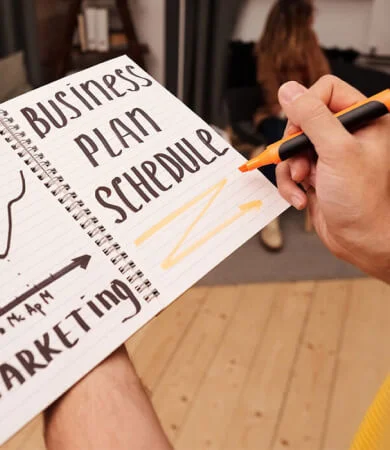 BUSINESS
PLAN
SCHEDULE
MARKETING